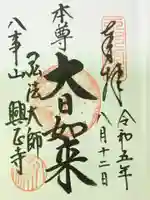 奉拝
令和五年
八月十二日
本尊
大日如来
弘法大師
八事山
興正寺